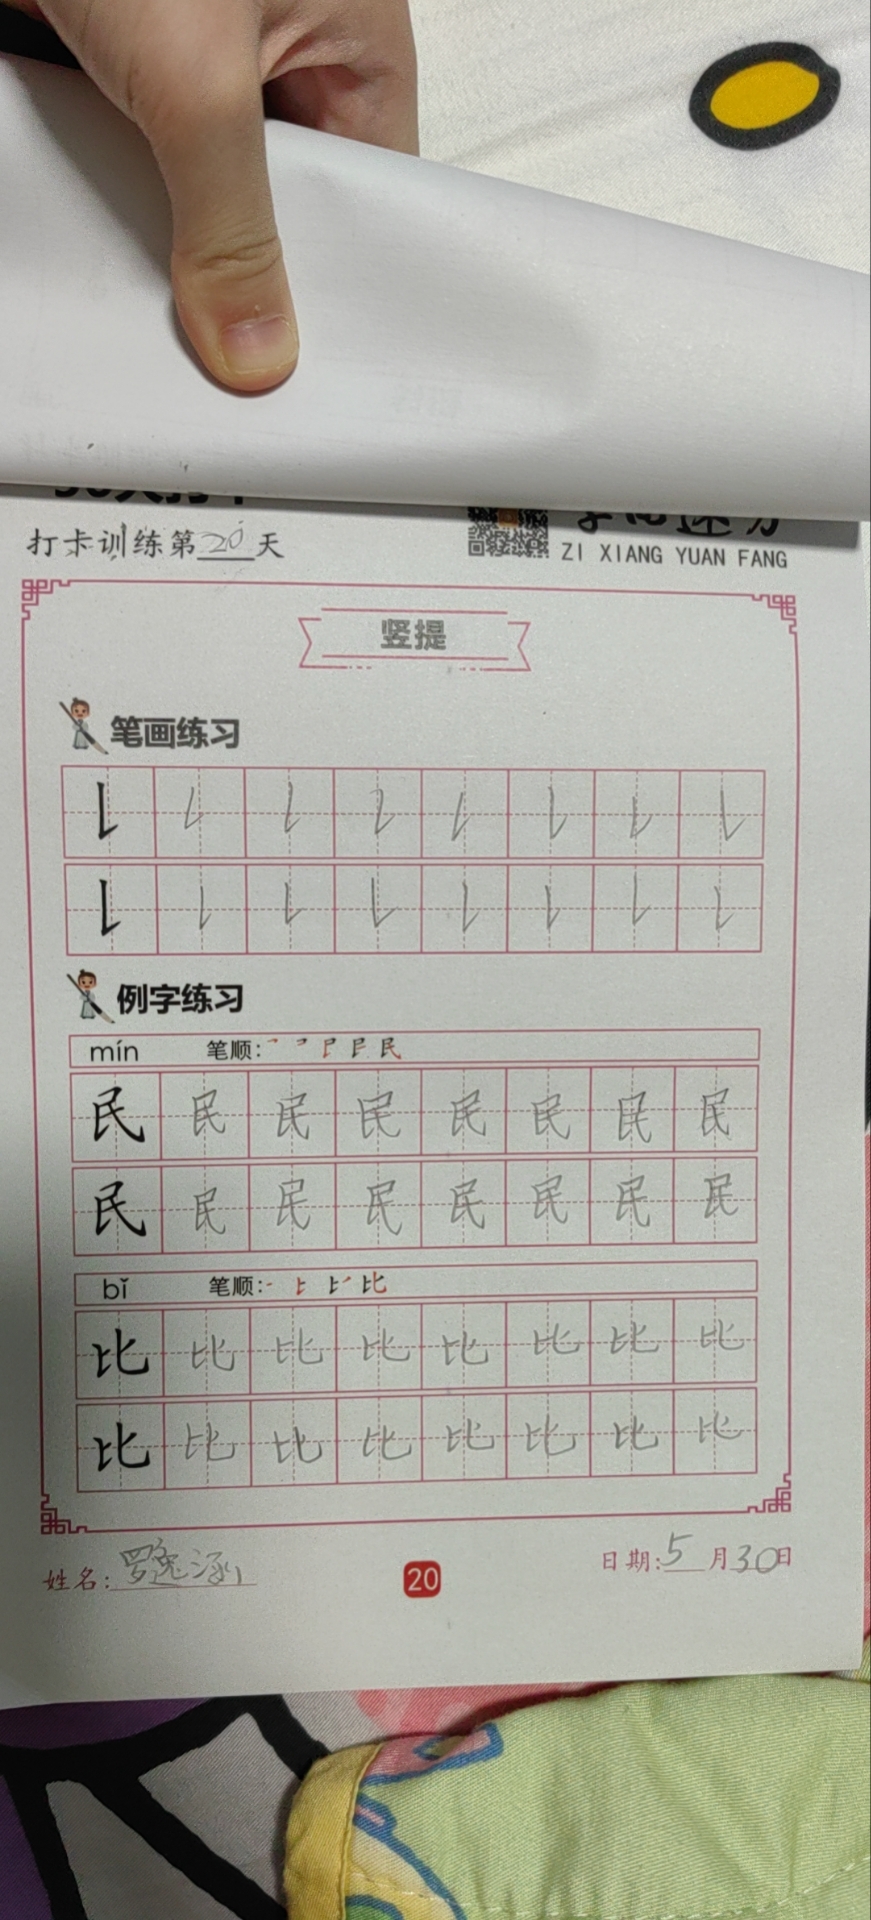 打卡训练第20天
ZI XIANG YUAN FANG
竖提
笔画练习
例字练习
mín 笔顺:
民 民 民 民 民 民 民 民
民 民 民 民 民 民 民 民
bǐ 笔顺:
比 比 比 比 比 比 比 比
比 比 比 比 比 比 比 比
姓名:罗逸涵 20 日期:5月30日